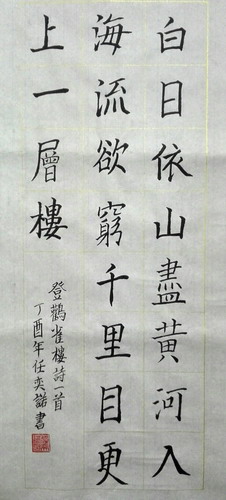 白日依山盡黃河入
海流欲窮千里目更
上一層樓
登鸛雀樓詩一首
丁酉年任奕諾書